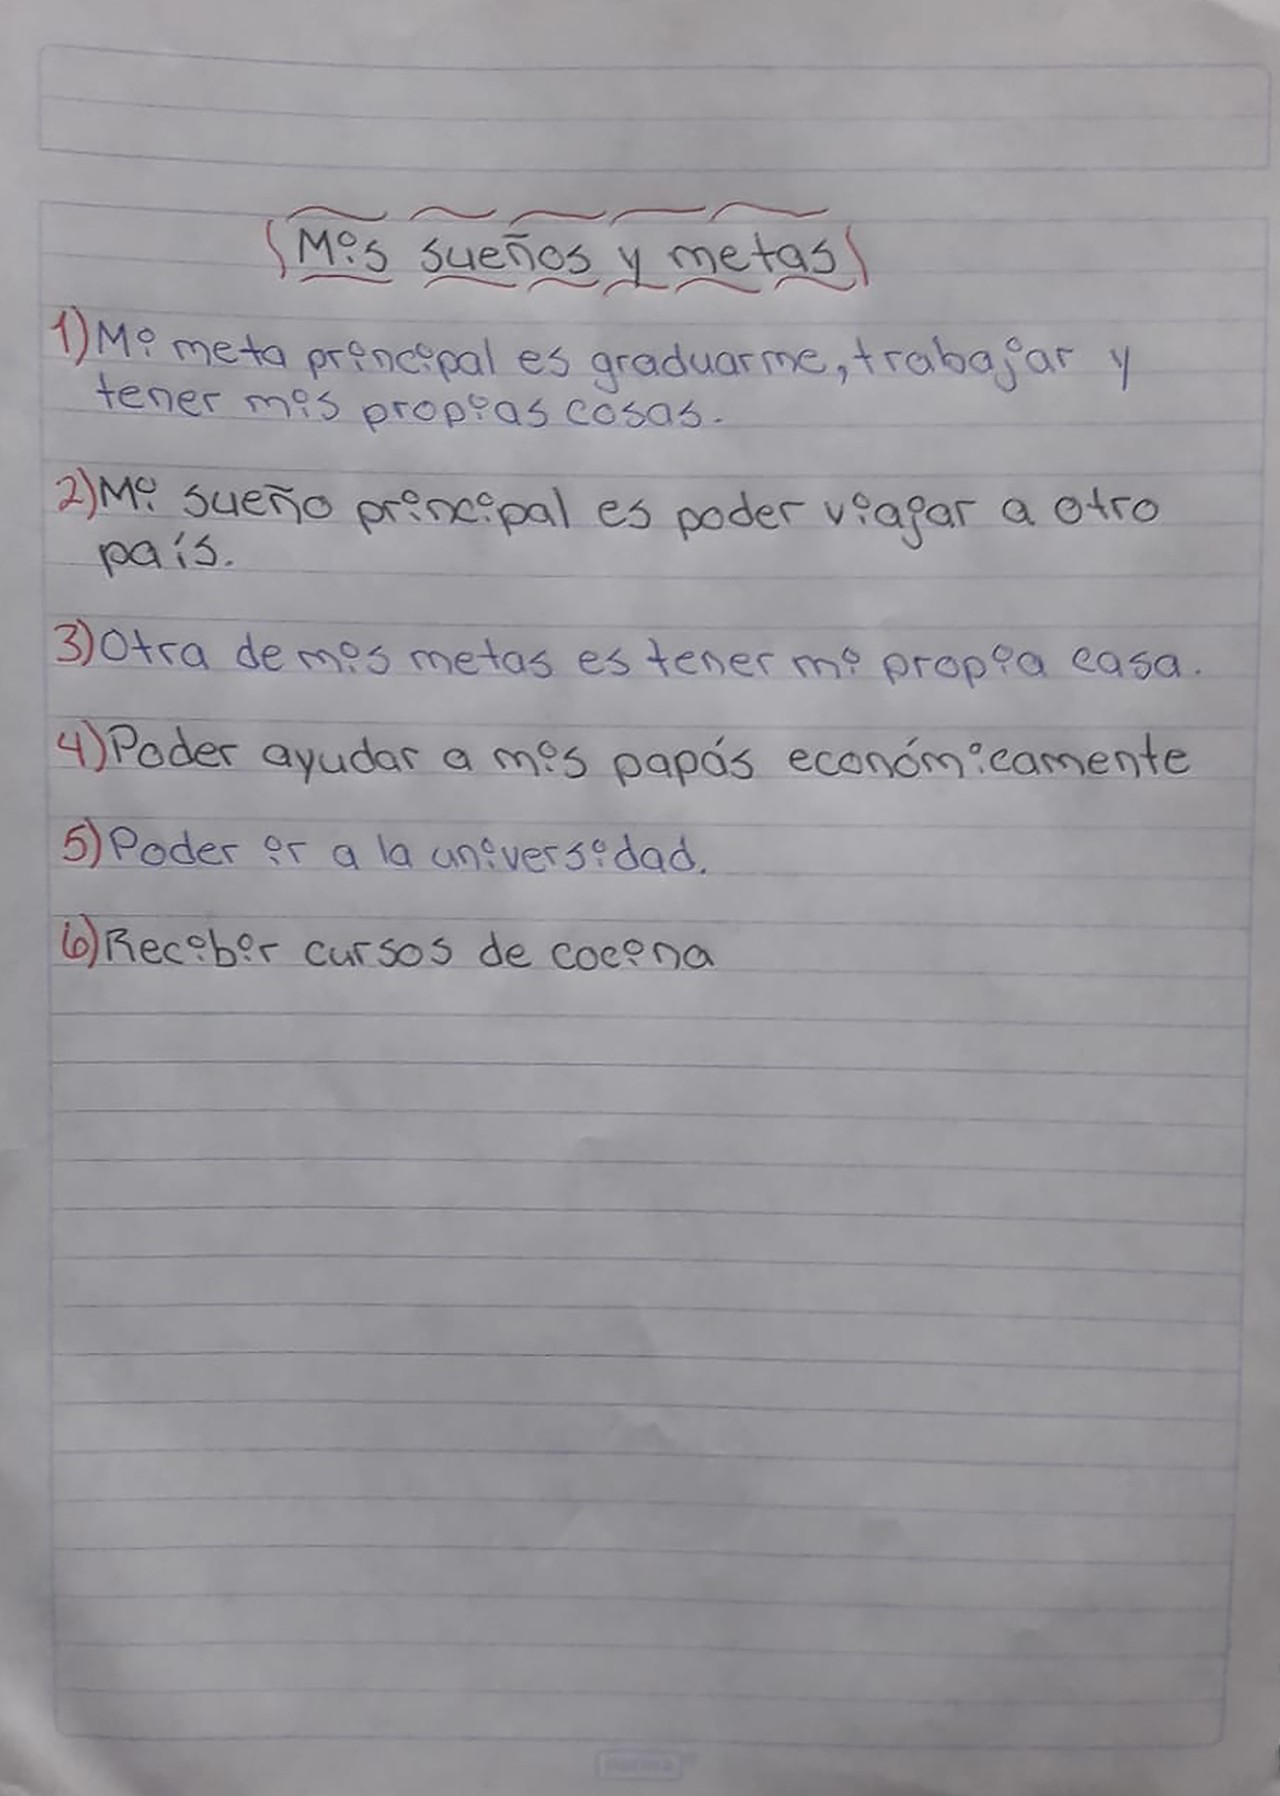 Mis sueños y metas
1) Mi meta principal es graduarme, trabajar y
tener mis propias cosas.
2) Mi sueño principal es poder viajar a otro
país.
3) Otra de mis metas es tener mi propia casa.
4) Poder ayudar a mis papás económicamente
5) Poder ir a la universidad.
6) Recibir cursos de cocina